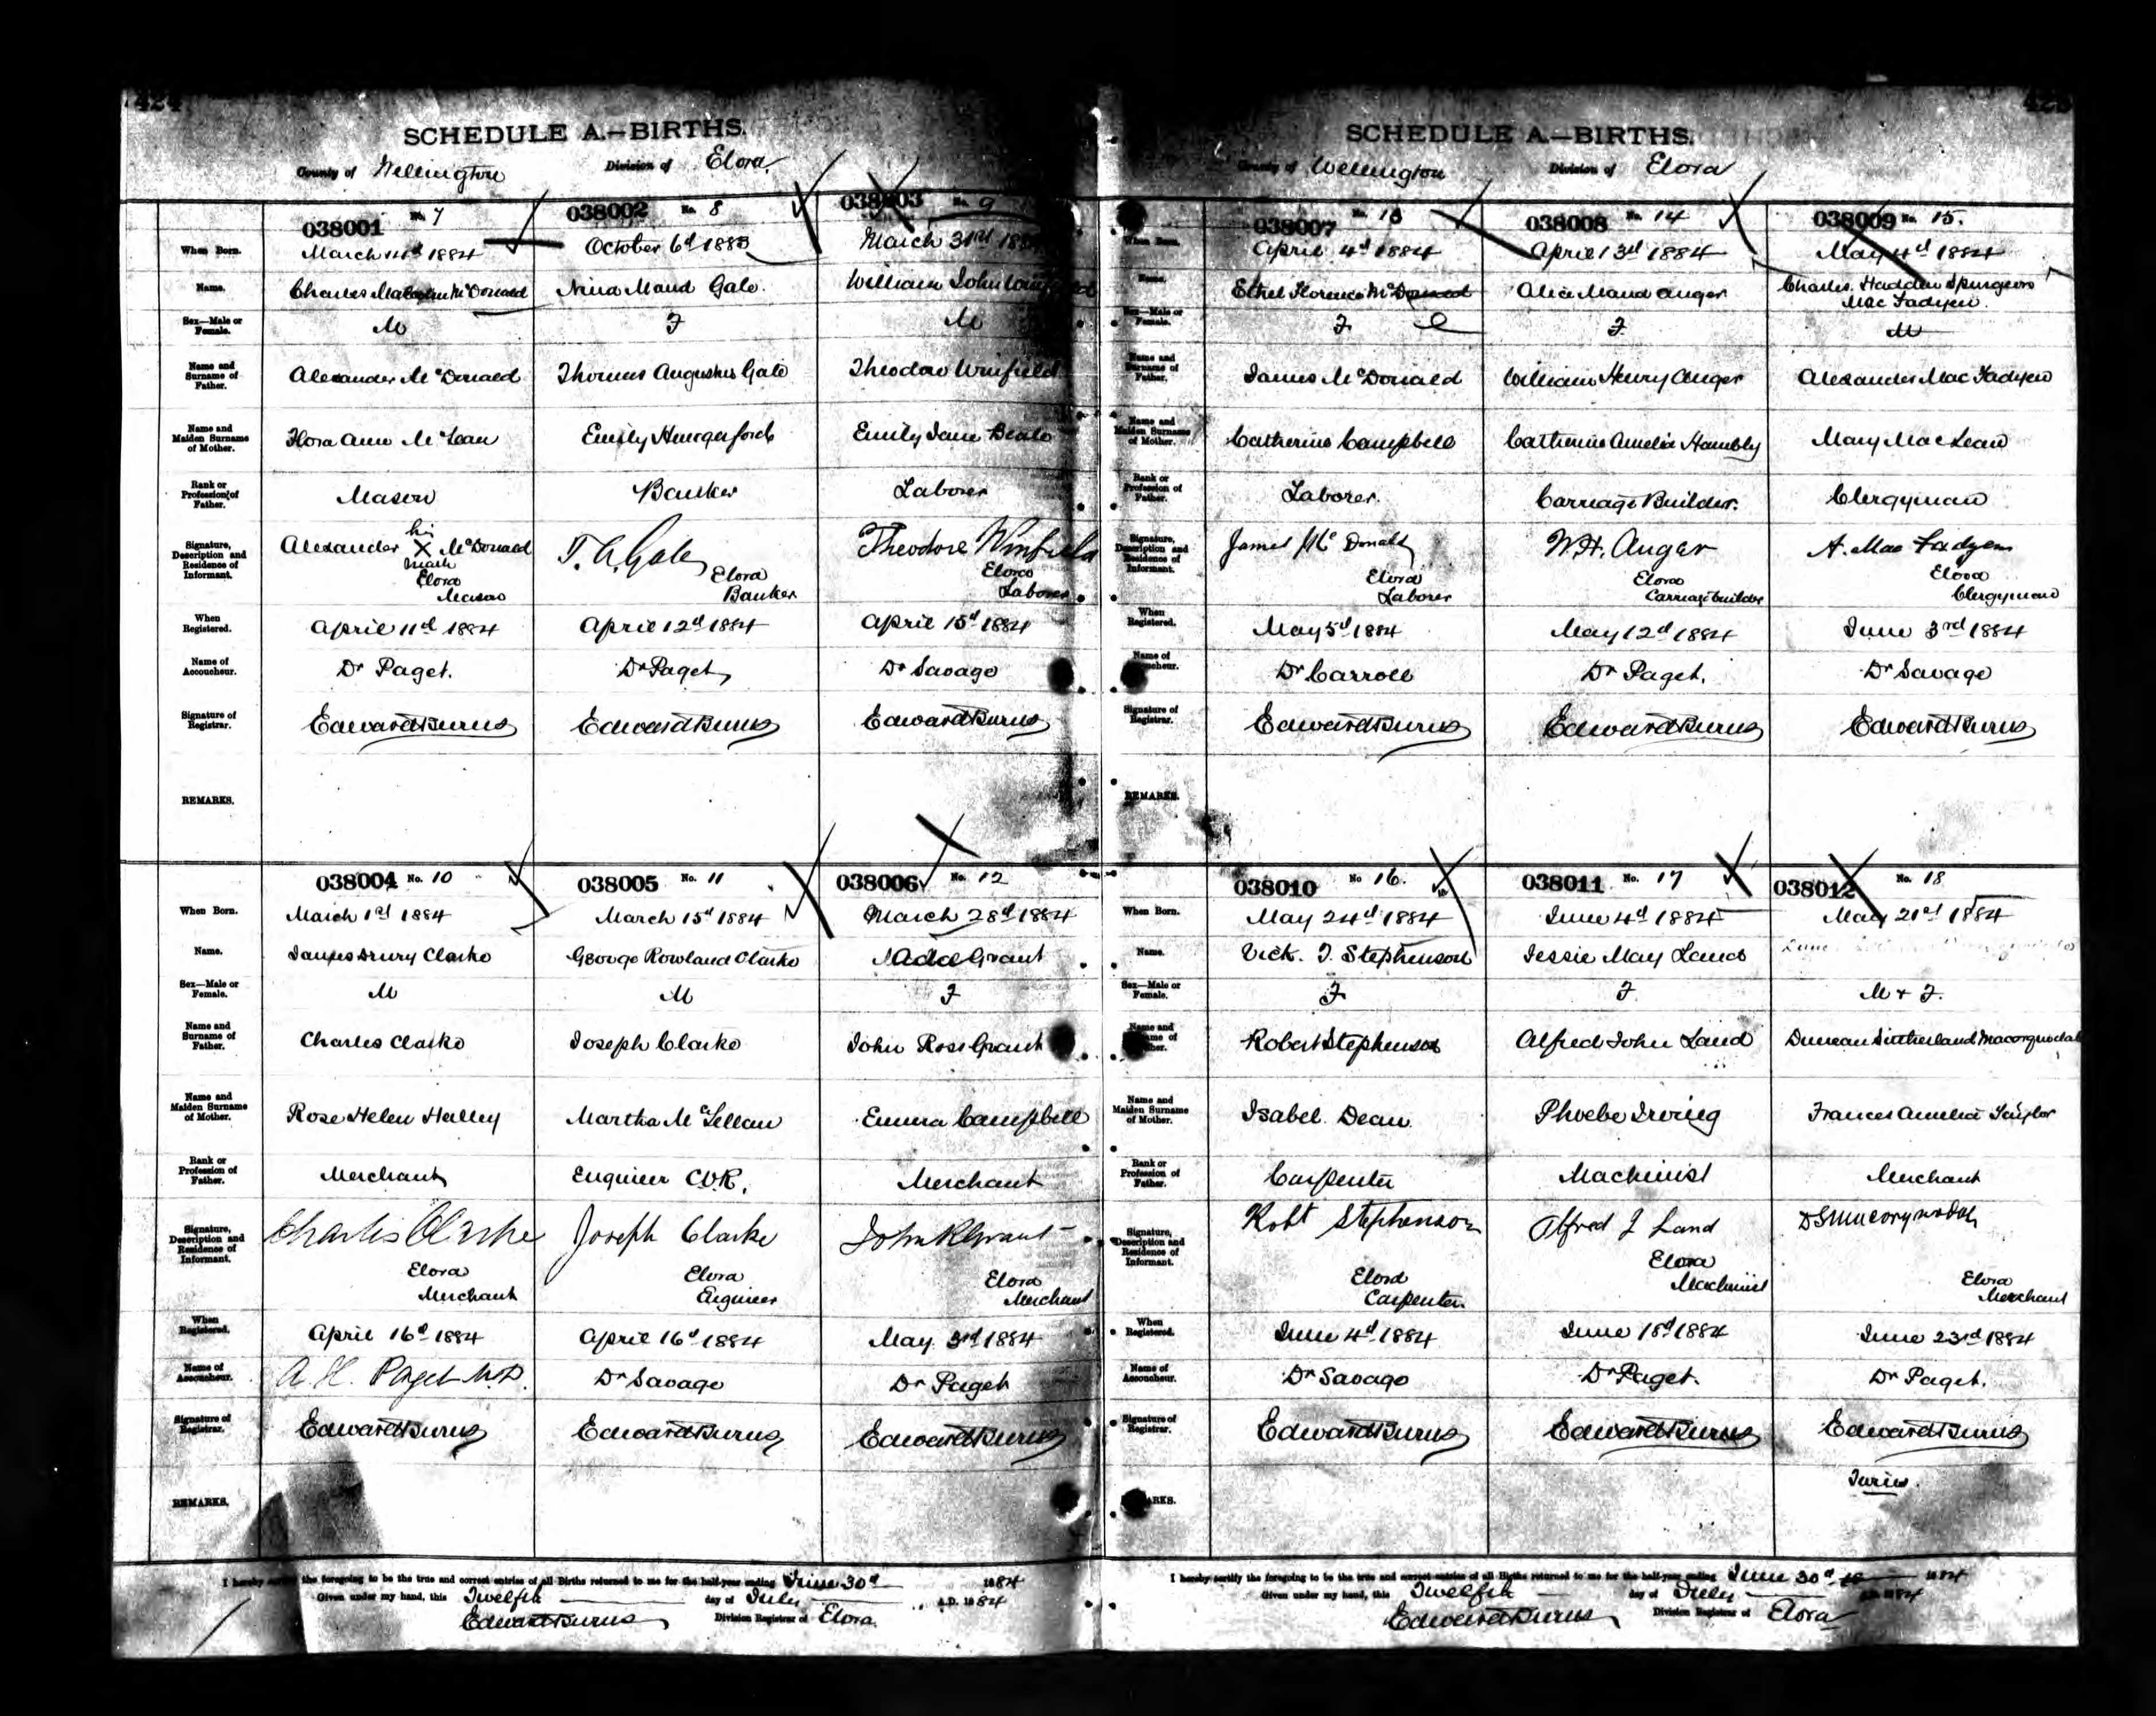 424
SCHEDULE A.—BIRTHS.
County of Wellington Division of Elora.
038001 No. 7
When Born. March 1884
Name. Charles McDonald
Sex—Male or Female. M
Name and Surname of Father. Alexander McDonald
Name and Maiden Surname of Mother. Flora Ann McLean
Rank or Profession of Father. Mason
Signature, Description and Residence of Informant. Alexander X McDonald
his
mark
Elora
Mason
When Registered. April 11th 1884
Name of Accoucheur. Dr Paget.
Signature of Registrar. Edward Burns
REMARKS.
038002 No. 8
October 6th 1883
Nina Maud Gale.
F
Thomas Augustus Gale
Emily Hungerford
Banker
T. A. Gale
Elora
Banker
April 12th 1884
Dr Paget
Edward Burns
038003 No. 9
March 31st
William John
M
Theodore Winfield
Emily Jane Beale
Laborer
Theodore Winfield
Elora
Laborer
April 15th 1884
Dr Savage
Edward Burns
038004 No. 10
When Born. March 1st 1884
Name. James Drury Clarke
Sex—Male or Female. M
Name and Surname of Father. Charles Clarke
Name and Maiden Surname of Mother. Rose Helen Halley
Rank or Profession of Father. Merchant
Signature, Description and Residence of Informant. Charles Clarke
Elora
Merchant
When Registered. April 16th 1884
Name of Accoucheur. A. H. Paget M.D.
Signature of Registrar. Edward Burns
REMARKS.
038005 No. 11
March 15th 1884
George Rowland Clarke
M
Joseph Clarke
Martha McLellan
Engineer
Joseph Clarke
Elora
Engineer
April 16th 1884
Dr Savage
Edward Burns
038006 No. 12
March 28th 1884
Ada Grant
F
John Ross Grant
Emma Campbell
Merchant
John R Grant
Elora
Merchant
May 3rd 1884
Dr Paget
Edward Burns
I hereby certify the foregoing to be the true and correct entries of all Births returned to me for the half-year ending June 30th 1884
Given under my hand, this Twelfth day of July A.D. 1884
Edward Burns Division Registrar of Elora.
SCHEDULE A.—BIRTHS.
County of Wellington Division of Elora
038007 No. 13
When Born. April 4th 1884
Name. Ethel Florence McDonald
Sex—Male or Female. F
Name and Surname of Father. James McDonald
Name and Maiden Surname of Mother. Catherine Campbell
Rank or Profession of Father. Laborer.
Signature, Description and Residence of Informant. James McDonald
Elora
Laborer
When Registered. May 5th 1884
Name of Accoucheur. Dr Carroll
Signature of Registrar. Edward Burns
REMARKS.
038008 No. 14
April 13th 1884
Alice Maud Auger
F
William Henry Auger
Catherine Amelia Hambly
Carriage Builder.
W. H. Auger
Elora
Carriage builder
May 12th 1884
Dr Paget.
Edward Burns
038009 No. 15.
May 4th 1884
Charles Haddon Spurgeon
Mac Fadyen.
M
Alexander Mac Fadyen
Mary Mac Lean
Clergyman
A. Mac Fadyen
Elora
Clergyman
June 3rd 1884
Dr Savage
Edward Burns
038010 No 16.
When Born. May 24th 1884
Name. Vick. J. Stephenson
Sex—Male or Female. F
Name and Surname of Father. Robert Stephenson
Name and Maiden Surname of Mother. Isabel Dean.
Rank or Profession of Father. Carpenter
Signature, Description and Residence of Informant. Robt Stephenson
Elora
Carpenter.
When Registered. June 4th 1884
Name of Accoucheur. Dr Savage
Signature of Registrar. Edward Burns
038011 No. 17
June 4th 1884
Jessie May Land
F.
Alfred John Land
Phoebe Irving
Machinist
Alfred J Land
Elora
Machinist
June 18th 1884
Dr Paget.
Edward Burns
038012 No. 18
May 21st 1884
M + F.
Duncan Sutherland Macorquodale
Frances Amelia Taylor
Merchant
Elora
Merchant
June 23rd 1884
Dr Paget.
Edward Burns
Twins.
I hereby certify the foregoing to be the true and correct entries of all Births returned to me for the half-year ending June 30th 1884
Given under my hand, this Twelfth day of July A.D. 1884
Edward Burns Division Registrar of Elora